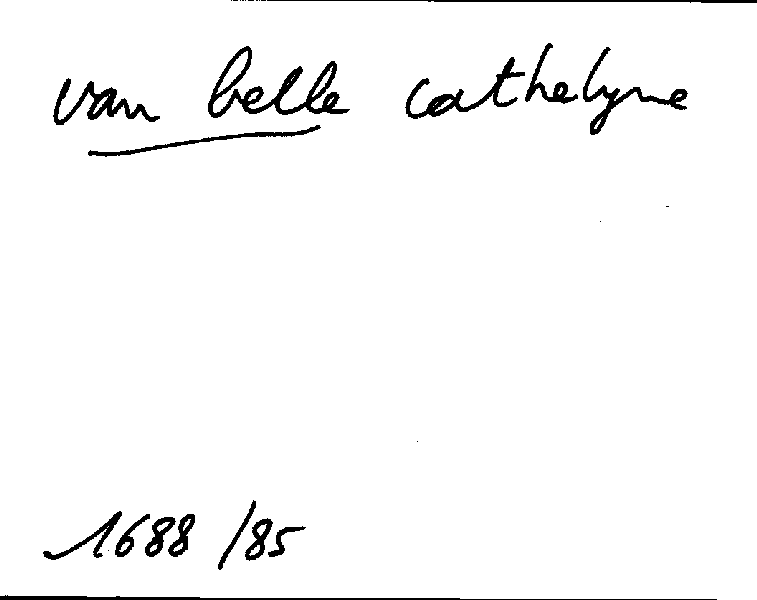 van belle cathelyne
1688 /85